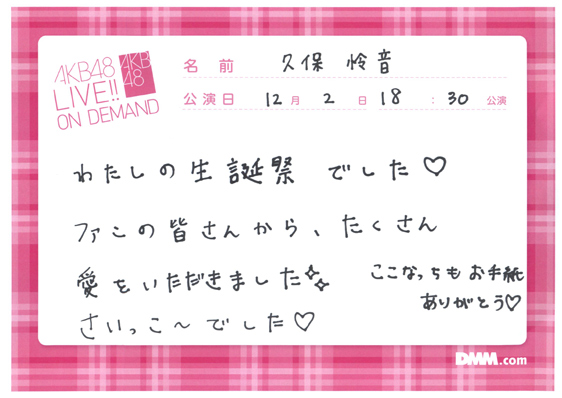 AKB48
LIVE!!
ON DEMAND
AKB
48
名前 久保 怜音
公演日 12月 2日 18:30公演
わたしの生誕祭 でした♡
ファンの皆さんから、たくさん
愛をいただきました✨
さいっこ〜でした♡
ここなっちもお手紙
ありがとう♡
DMM.com